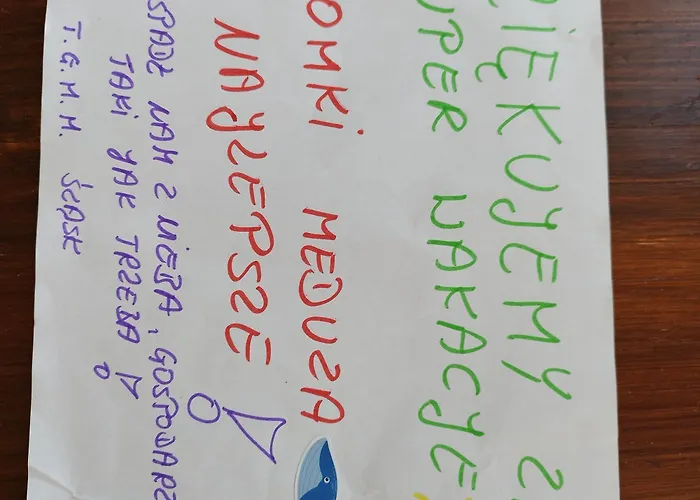 ZIĘKUJEMY Z
UPER WAKACJE
OMKI MEDUZA
NAJLEPSZE !
SPADŁ NAM Z NIEBA, GOSPODARZ
TAKI JAK TRZEBA !
T.G.M.M.